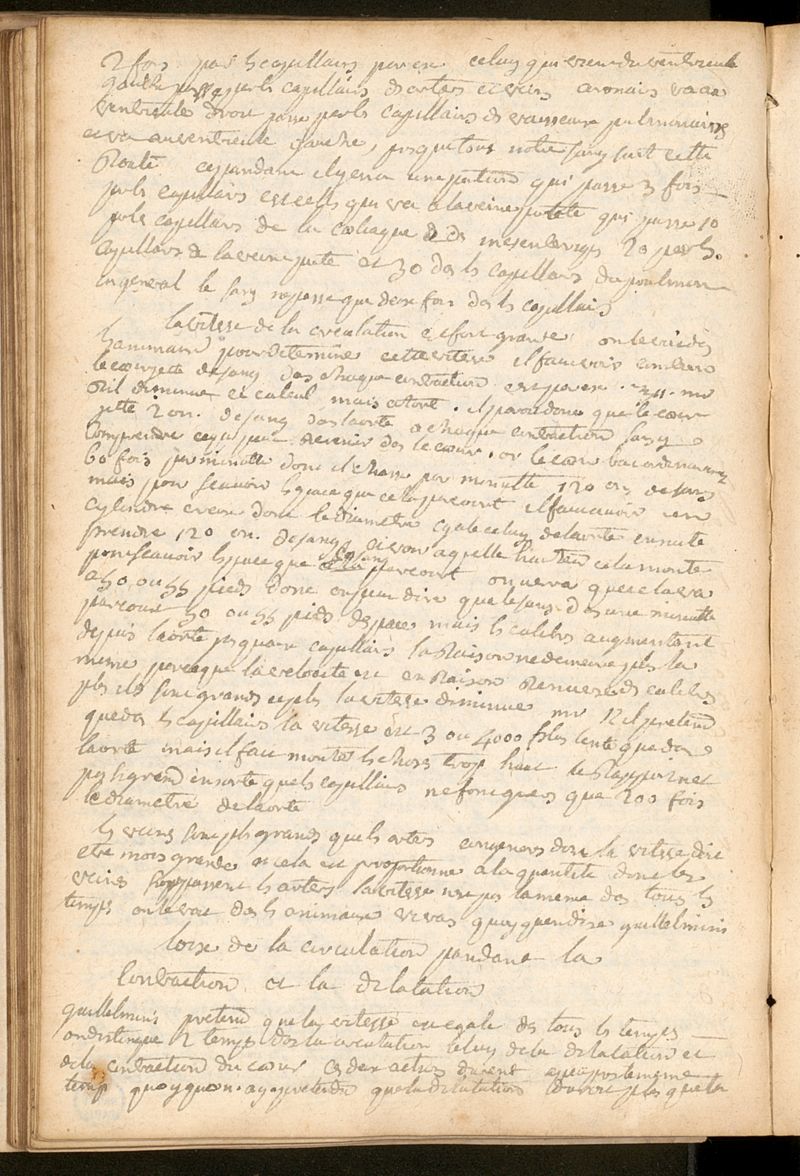 2 fois par les capillairs par ex. celuy qui vient du ventricule
gauche passe par les capillairs des arteres et veins aronais va au
ventricule droit passe par les capillairs des vaisseaux pulmonaires
et va au ventricule gauche, presque tout notre sang fait cette
Route cependant il y en a une partie qui passe 3 fois
par les capillairs est celle qui va a la veine porte qui passe 10
par les capillairs de la coeliaque & des mesenteriq 20 par les
capillairs de la veine porte et 30 des les capillairs du poulmon
en general le sang ne passe que deux fois des les capillairs
la vitesse de la circulation est fort grande on le voit des
les animaux pour determiner cette vitesse il faut voir combien
le coeur jette de sang des chaque contraction par ex. mr
diminue ce calcul mais a tort. il paroit donc que le coeur
jette 2 on. de sang des laorte a chaque contraction sans
comprendre ce qui peut revenir des le coeur. or le coeur bat ordinairement
60 fois par minutte donc il chasse par minutte 120 on. de sang
mais pour scavoir lespace que cela parcourt il faut avoir un
cylindre creux dont le diametre egale celuy de laorte ensuite
prendre 120 on. de sang et voir a quelle hauteur cela monte
pour scavoir lespace que ce sang parcourt on verra que cela va
a 50 ou 55 pieds donc on peut dire que le sang des une minutte
parcourt 50 ou 55 pieds despace mais les calibres augmentent
depuis laorte jusquaux capillairs la Raison ne demeure plus la
meme parceque la velocité est en Raison Renversée des calibres
plus ils sont grands et plus la vitesse diminue mr il pretend
que des les capillairs la vitesse est 3 ou 4000 fois plus lente que des
laorte mais il fait monter les choses trop haut le Rapport nest
pas si grand en sorte que les capillairs ne font guers que 200 fois
le diametre de laorte
les veins sont plus grands que les arters en general donc la vitesse doit
etre moins grande et cela est proportionné a la quantité dont les
veins surpassent les arters la vitesse nest pas la meme des tous les
temps on le voit des les animaux vivans quoy quen dise guillelmini
loix de la circulation pendant la
Contraction et la dilatation
guillelmini pretend que la vitesse est egale des tous les temps
on distingue 2 temps des la circulation celuy de la dilatation et
de la contraction du coeur ces deux actions durent a peu pres le meme
temp quoyquon ay pretendu que la dilatation duroit plus que la